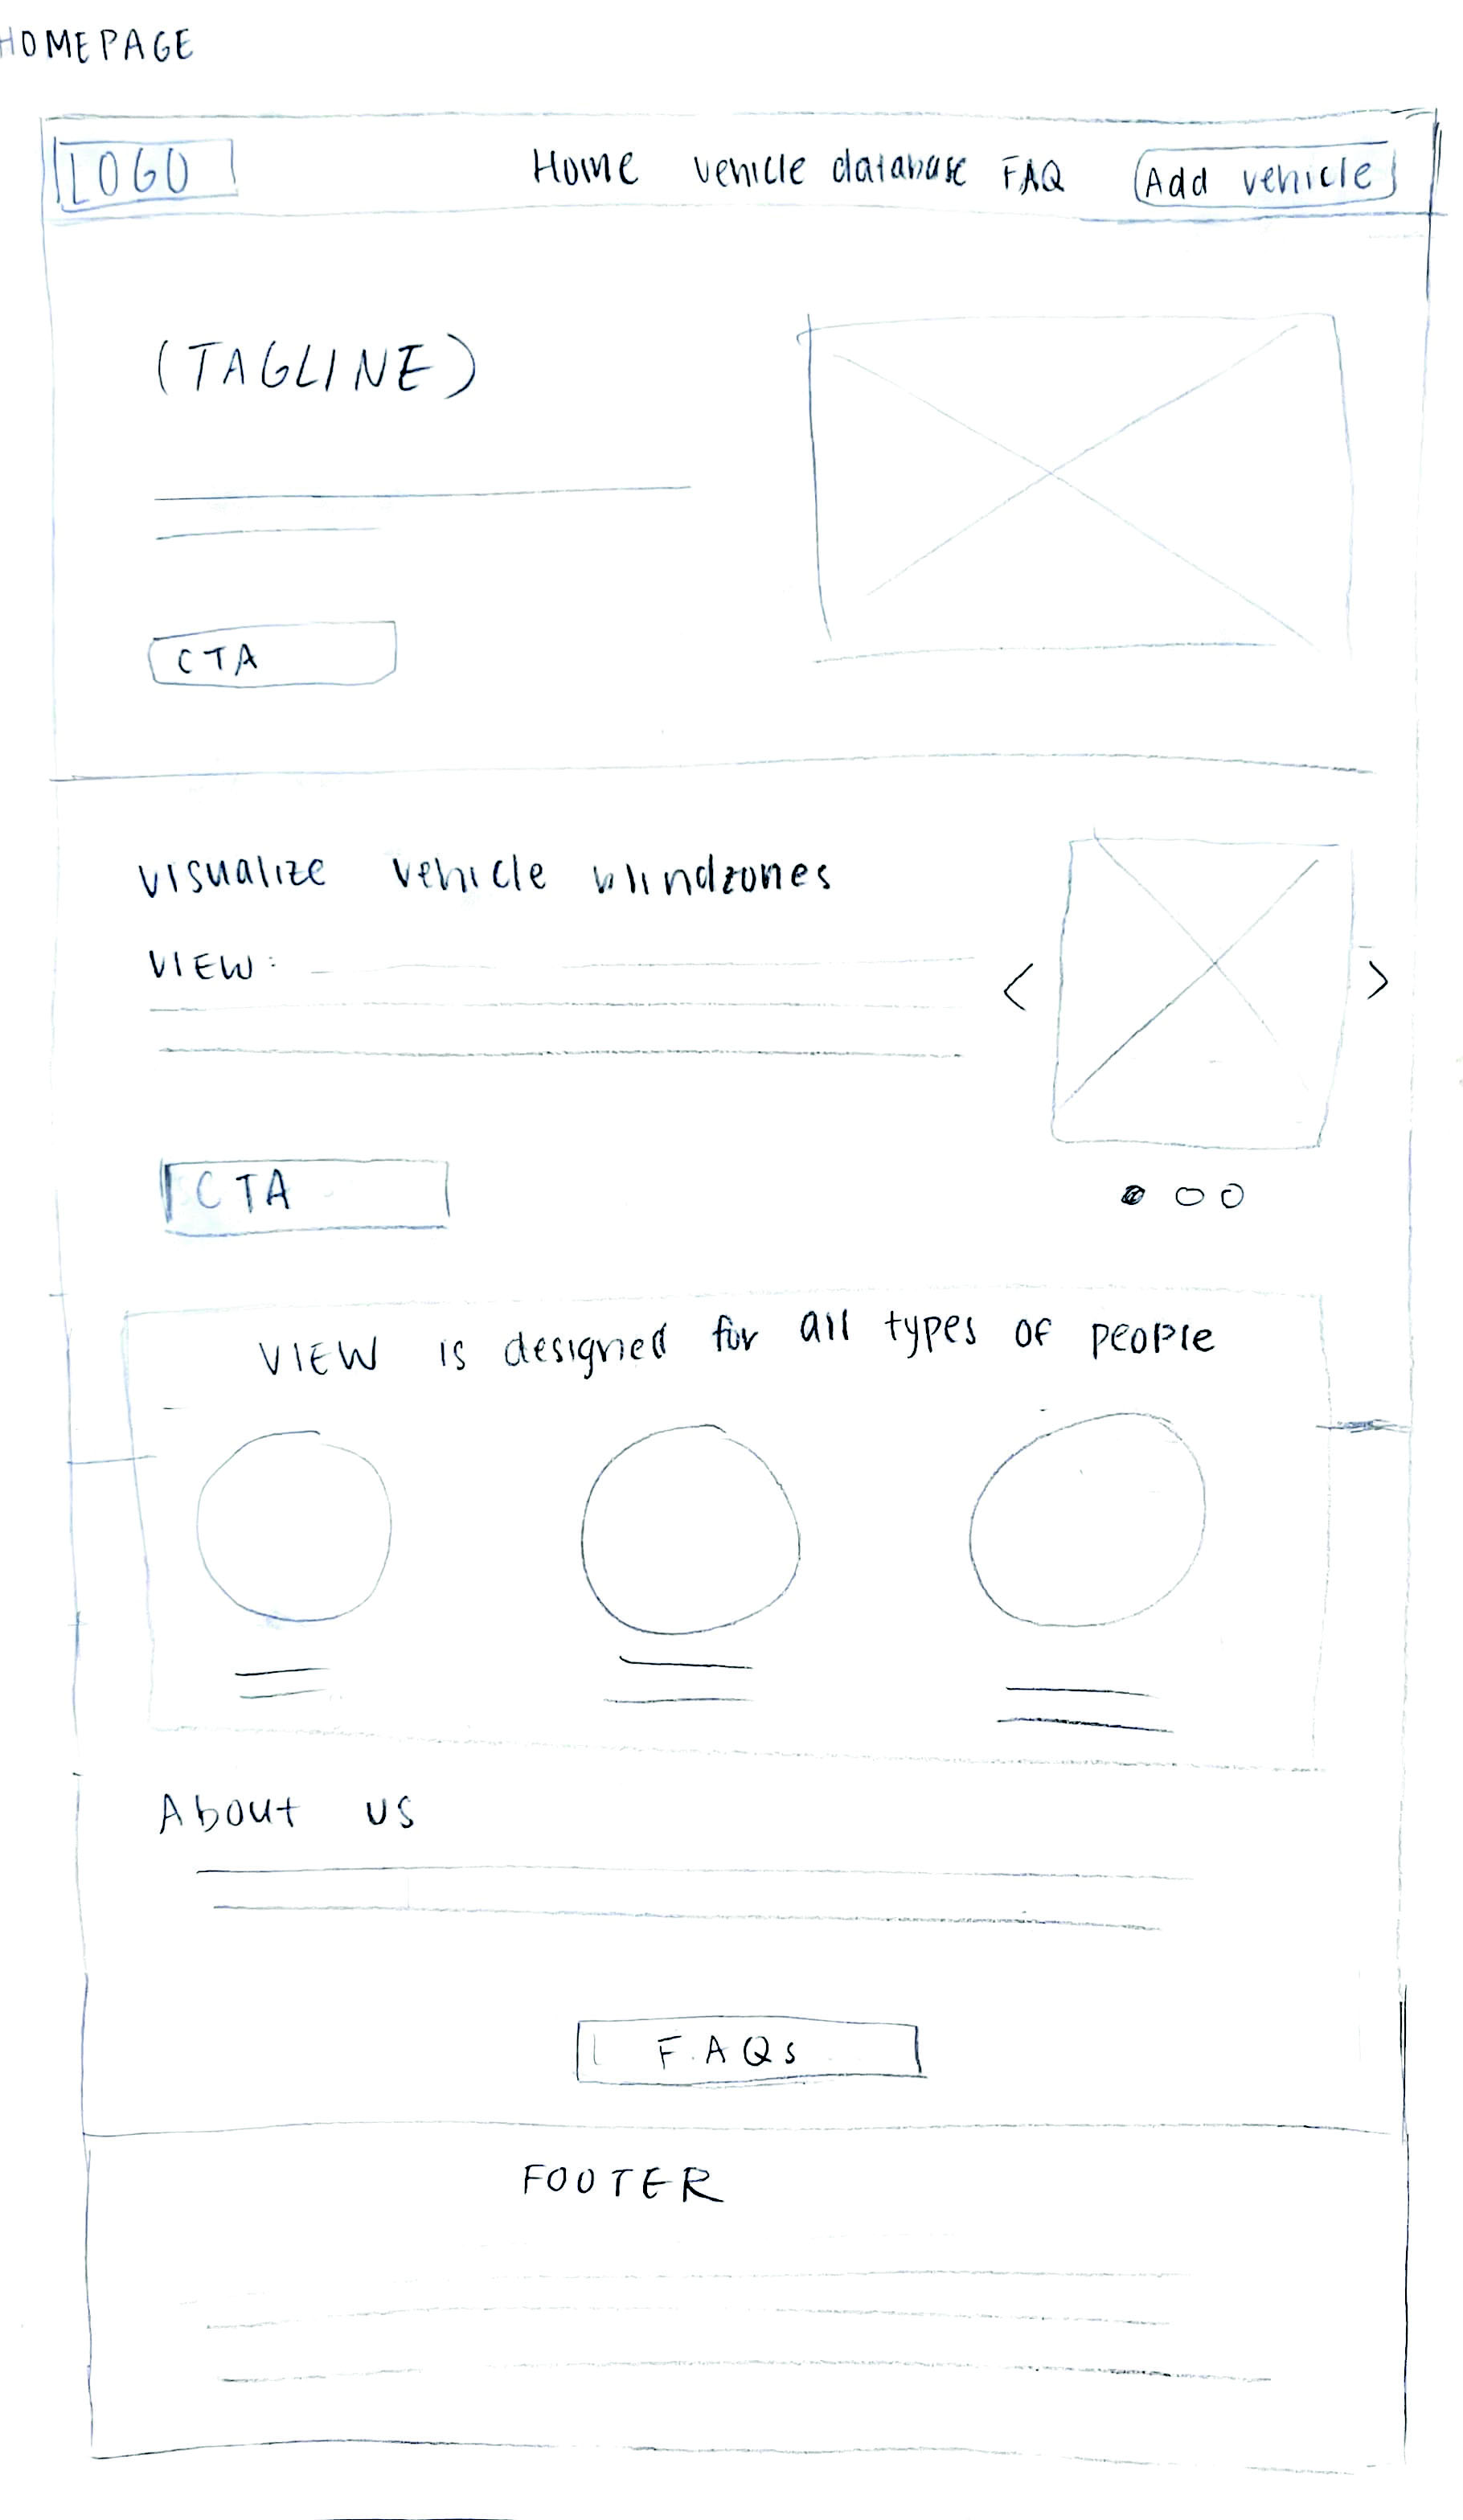 HOMEPAGE
LOGO Home vehicle database FAQ Add vehicle
(TAGLINE)
CTA
visualize vehicle blindzones
VIEW:
< >
CTA
VIEW is designed for all types of people
About us
F.AQs
FOOTER